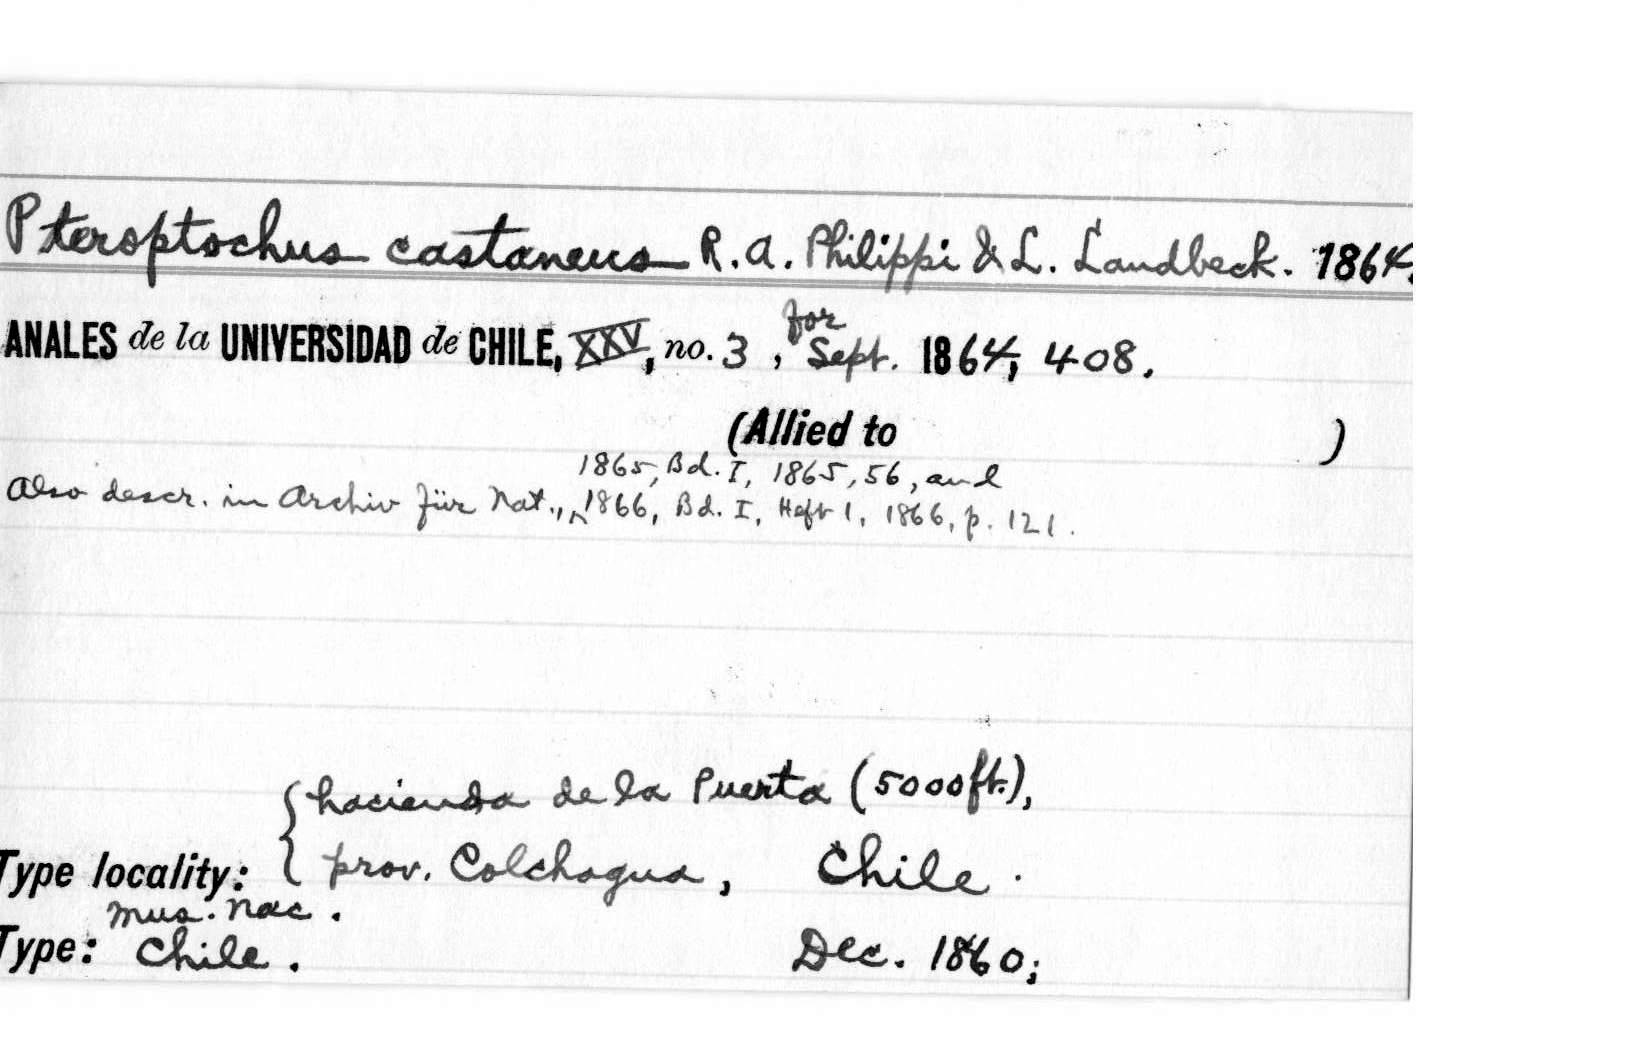 Pteroptochus castaneus R.A. Philippi & L. Landbeck. 1864.
ANALES de la UNIVERSIDAD de CHILE, XXV, no. 3, for Sept. 1864, 408.
(Allied to )
1865, Bd. I, 1865, 56, and
Also descr. in Archiv für Nat., ‸1866, Bd. I, Heft 1, 1866, p. 121.
hacienda de la Puerta (5000ft.),
Type locality: prov. Colchagua, Chile.
Mus. Nac.
Type: Chile. Dec. 1860;